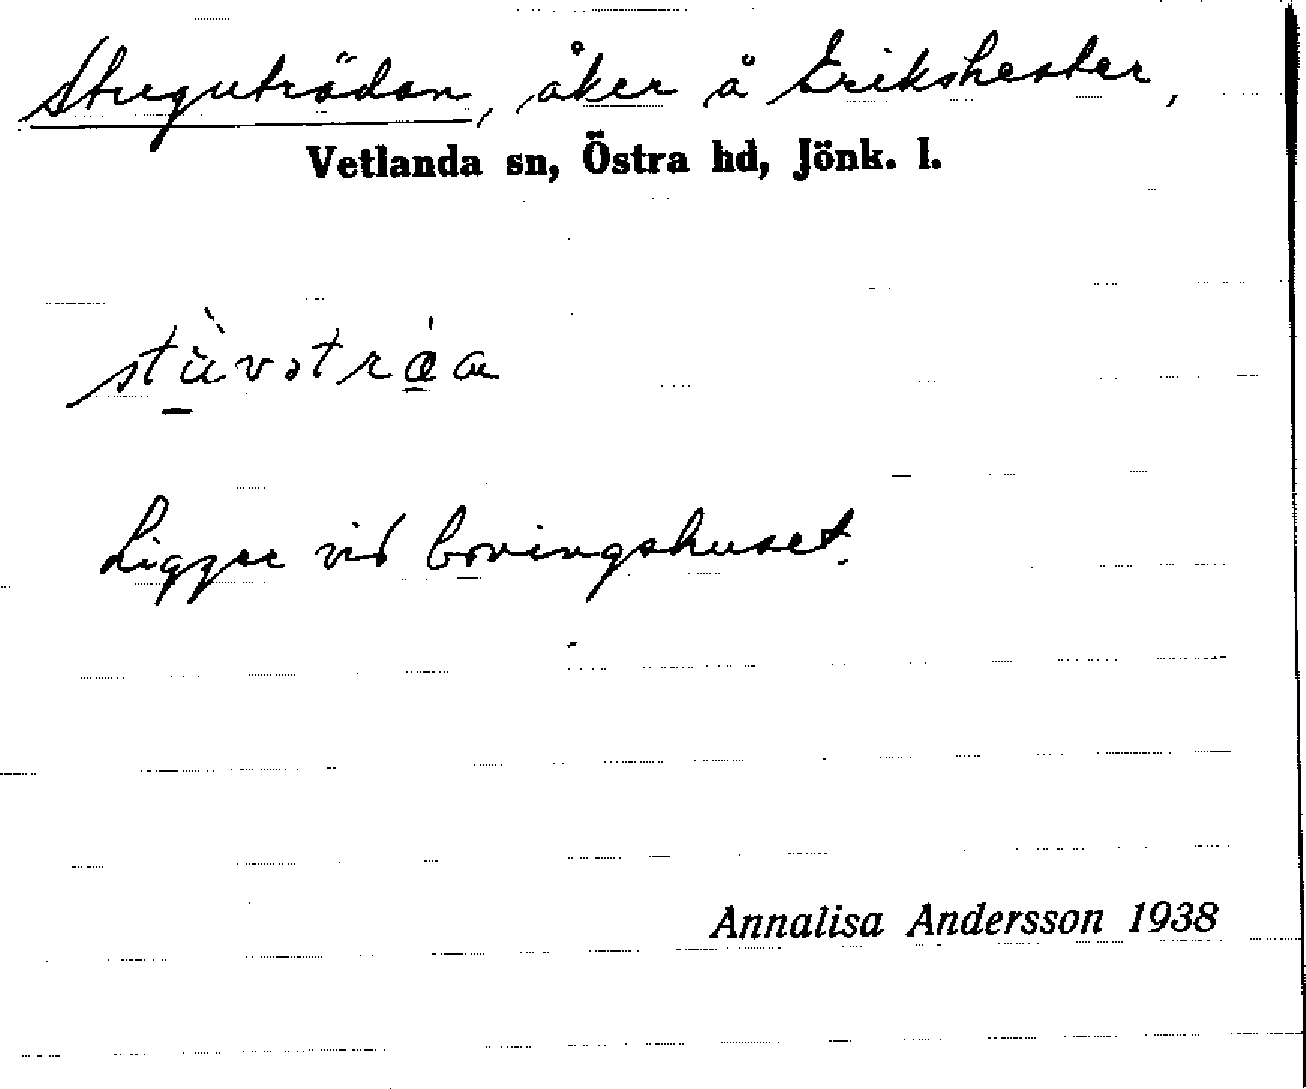 Stuguträdan, åker å Erikshester,
Vetlanda sn, Östra hd, Jönk. l.
Ligger vid bovingshuset.
Annalisa Andersson 1938